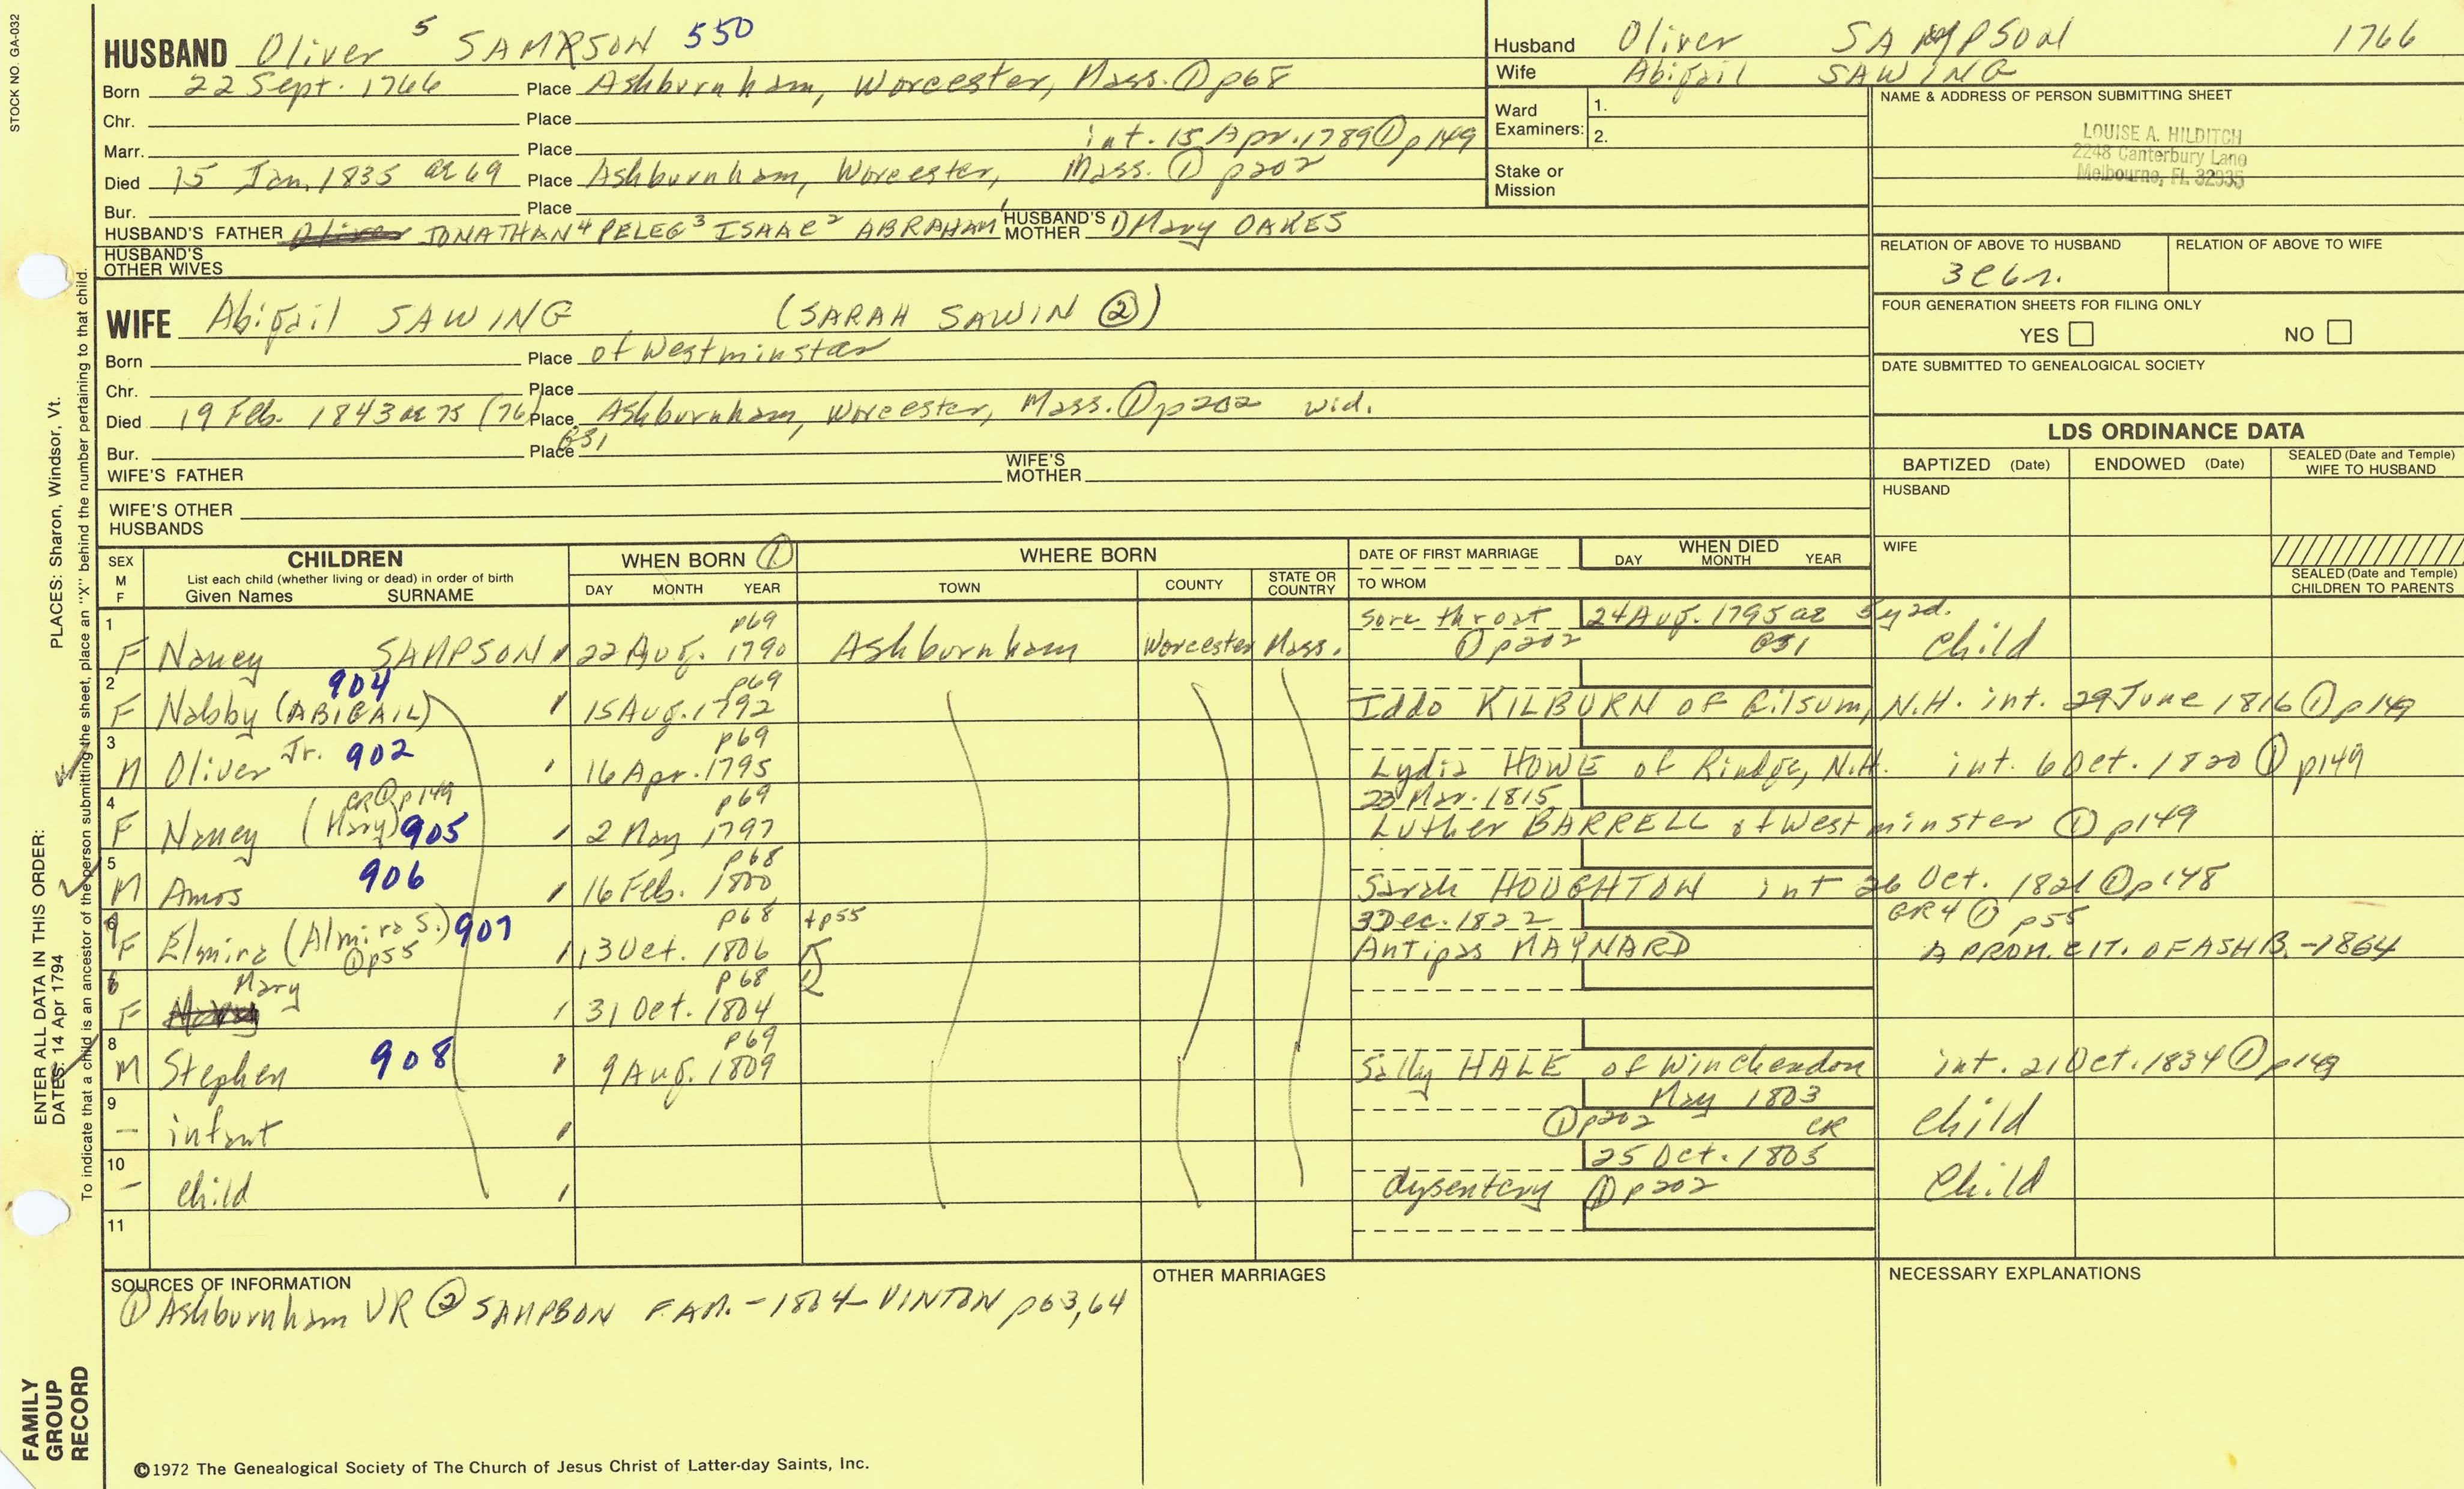 STOCK NO. GA-032
HUSBAND Oliver 5 SAMPSON 550
Born 22 Sept. 1766 Place Ashburnham, Worcester, Mass. ① p68
Chr. Place
Marr. Place int. 15 Apr. 1789 ① p149
Died 15 Jan. 1835 ae 69 Place Ashburnham, Worcester, Mass. ① p202
Bur. Place
HUSBAND'S FATHER JONATHAN 4 PELEG 3 ISAAC 2 ABRAHAM 1 HUSBAND'S MOTHER 1) Mary OAKES
HUSBAND'S OTHER WIVES
Husband Oliver SAMPSON 1766
Wife Abigail SAWING
Ward Examiners: 1.
2.
Stake or Mission
NAME & ADDRESS OF PERSON SUBMITTING SHEET
LOUISE A. HILDITCH
2248 Canterbury Lane
Melbourne, Fl. 32935
RELATION OF ABOVE TO HUSBAND RELATION OF ABOVE TO WIFE
FOUR GENERATION SHEETS FOR FILING ONLY
YES NO
DATE SUBMITTED TO GENEALOGICAL SOCIETY
WIFE Abigail SAWING (SARAH SAWIN ②)
Born Place of Westminster
Chr. Place
Died 19 Feb. 1843 ae 75 (76) Place Ashburnham, Worcester, Mass. ① p202 wid.
Bur. Place GS1
WIFE'S FATHER WIFE'S MOTHER
WIFE'S OTHER HUSBANDS
LDS ORDINANCE DATA
BAPTIZED (Date) ENDOWED (Date) SEALED (Date and Temple) WIFE TO HUSBAND
HUSBAND
WIFE
SEALED (Date and Temple) CHILDREN TO PARENTS
SEX M F CHILDREN List each child (whether living or dead) in order of birth Given Names SURNAME
WHEN BORN ① DAY MONTH YEAR
WHERE BORN TOWN COUNTY STATE OR COUNTRY
DATE OF FIRST MARRIAGE TO WHOM
WHEN DIED DAY MONTH YEAR
1 p69 Sore throat 24 Aug. 1795 ae 5y 2d.
F Nancy SAMPSON 22 Aug. 1790 Ashburnham Worcester Mass. ① p202 GS1 Child
2 904 p69
F Nabby (ABIGAIL) 15 Aug. 1792 Iddo KILBURN of Gilsum, N.H. int. 29 June 1816 ① p149
3 p69
M Oliver Jr. 902 16 Apr. 1795 Lydia HOWE of Rindge, N.H. int. 6 Oct. 1820 ① p149
4 CR ① p149 p69 23 Mar. 1815
F Nancy (Mary) 905 2 May 1797 Luther BARRELL of Westminster ① p149
5 906 p68
M Amos 16 Feb. 1800 Sarah HOUGHTON int 26 Oct. 1821 ① p148
p68 + p55 3 Dec. 1822 GR4 ① p55
F Elmira (Almira S.) 907 ① p55 13 Oct. 1806 Antipas MAYNARD A PROM. CIT. OF ASHB. - 1864
6 Mary p68
F 31 Oct. 1804
8 p69
M Stephen 908 9 Aug. 1809 Sally HALE of Winchendon int. 21 Oct. 1834 ① p149
9 May 1803
– infant ① p202 CR Child
10 25 Oct. 1803
– child dysentery ① p202 Child
11
SOURCES OF INFORMATION
① Ashburnham VR ② SAMPSON FAM. - 1864 - VINTON p63, 64
OTHER MARRIAGES
NECESSARY EXPLANATIONS
©1972 The Genealogical Society of The Church of Jesus Christ of Latter-day Saints, Inc.
FAMILY GROUP RECORD
ENTER ALL DATA IN THIS ORDER:
DATES: 14 Apr 1794 PLACES: Sharon, Windsor, Vt.
To indicate that a child is an ancestor of the person submitting the sheet, place an "X" behind the number pertaining to that child.